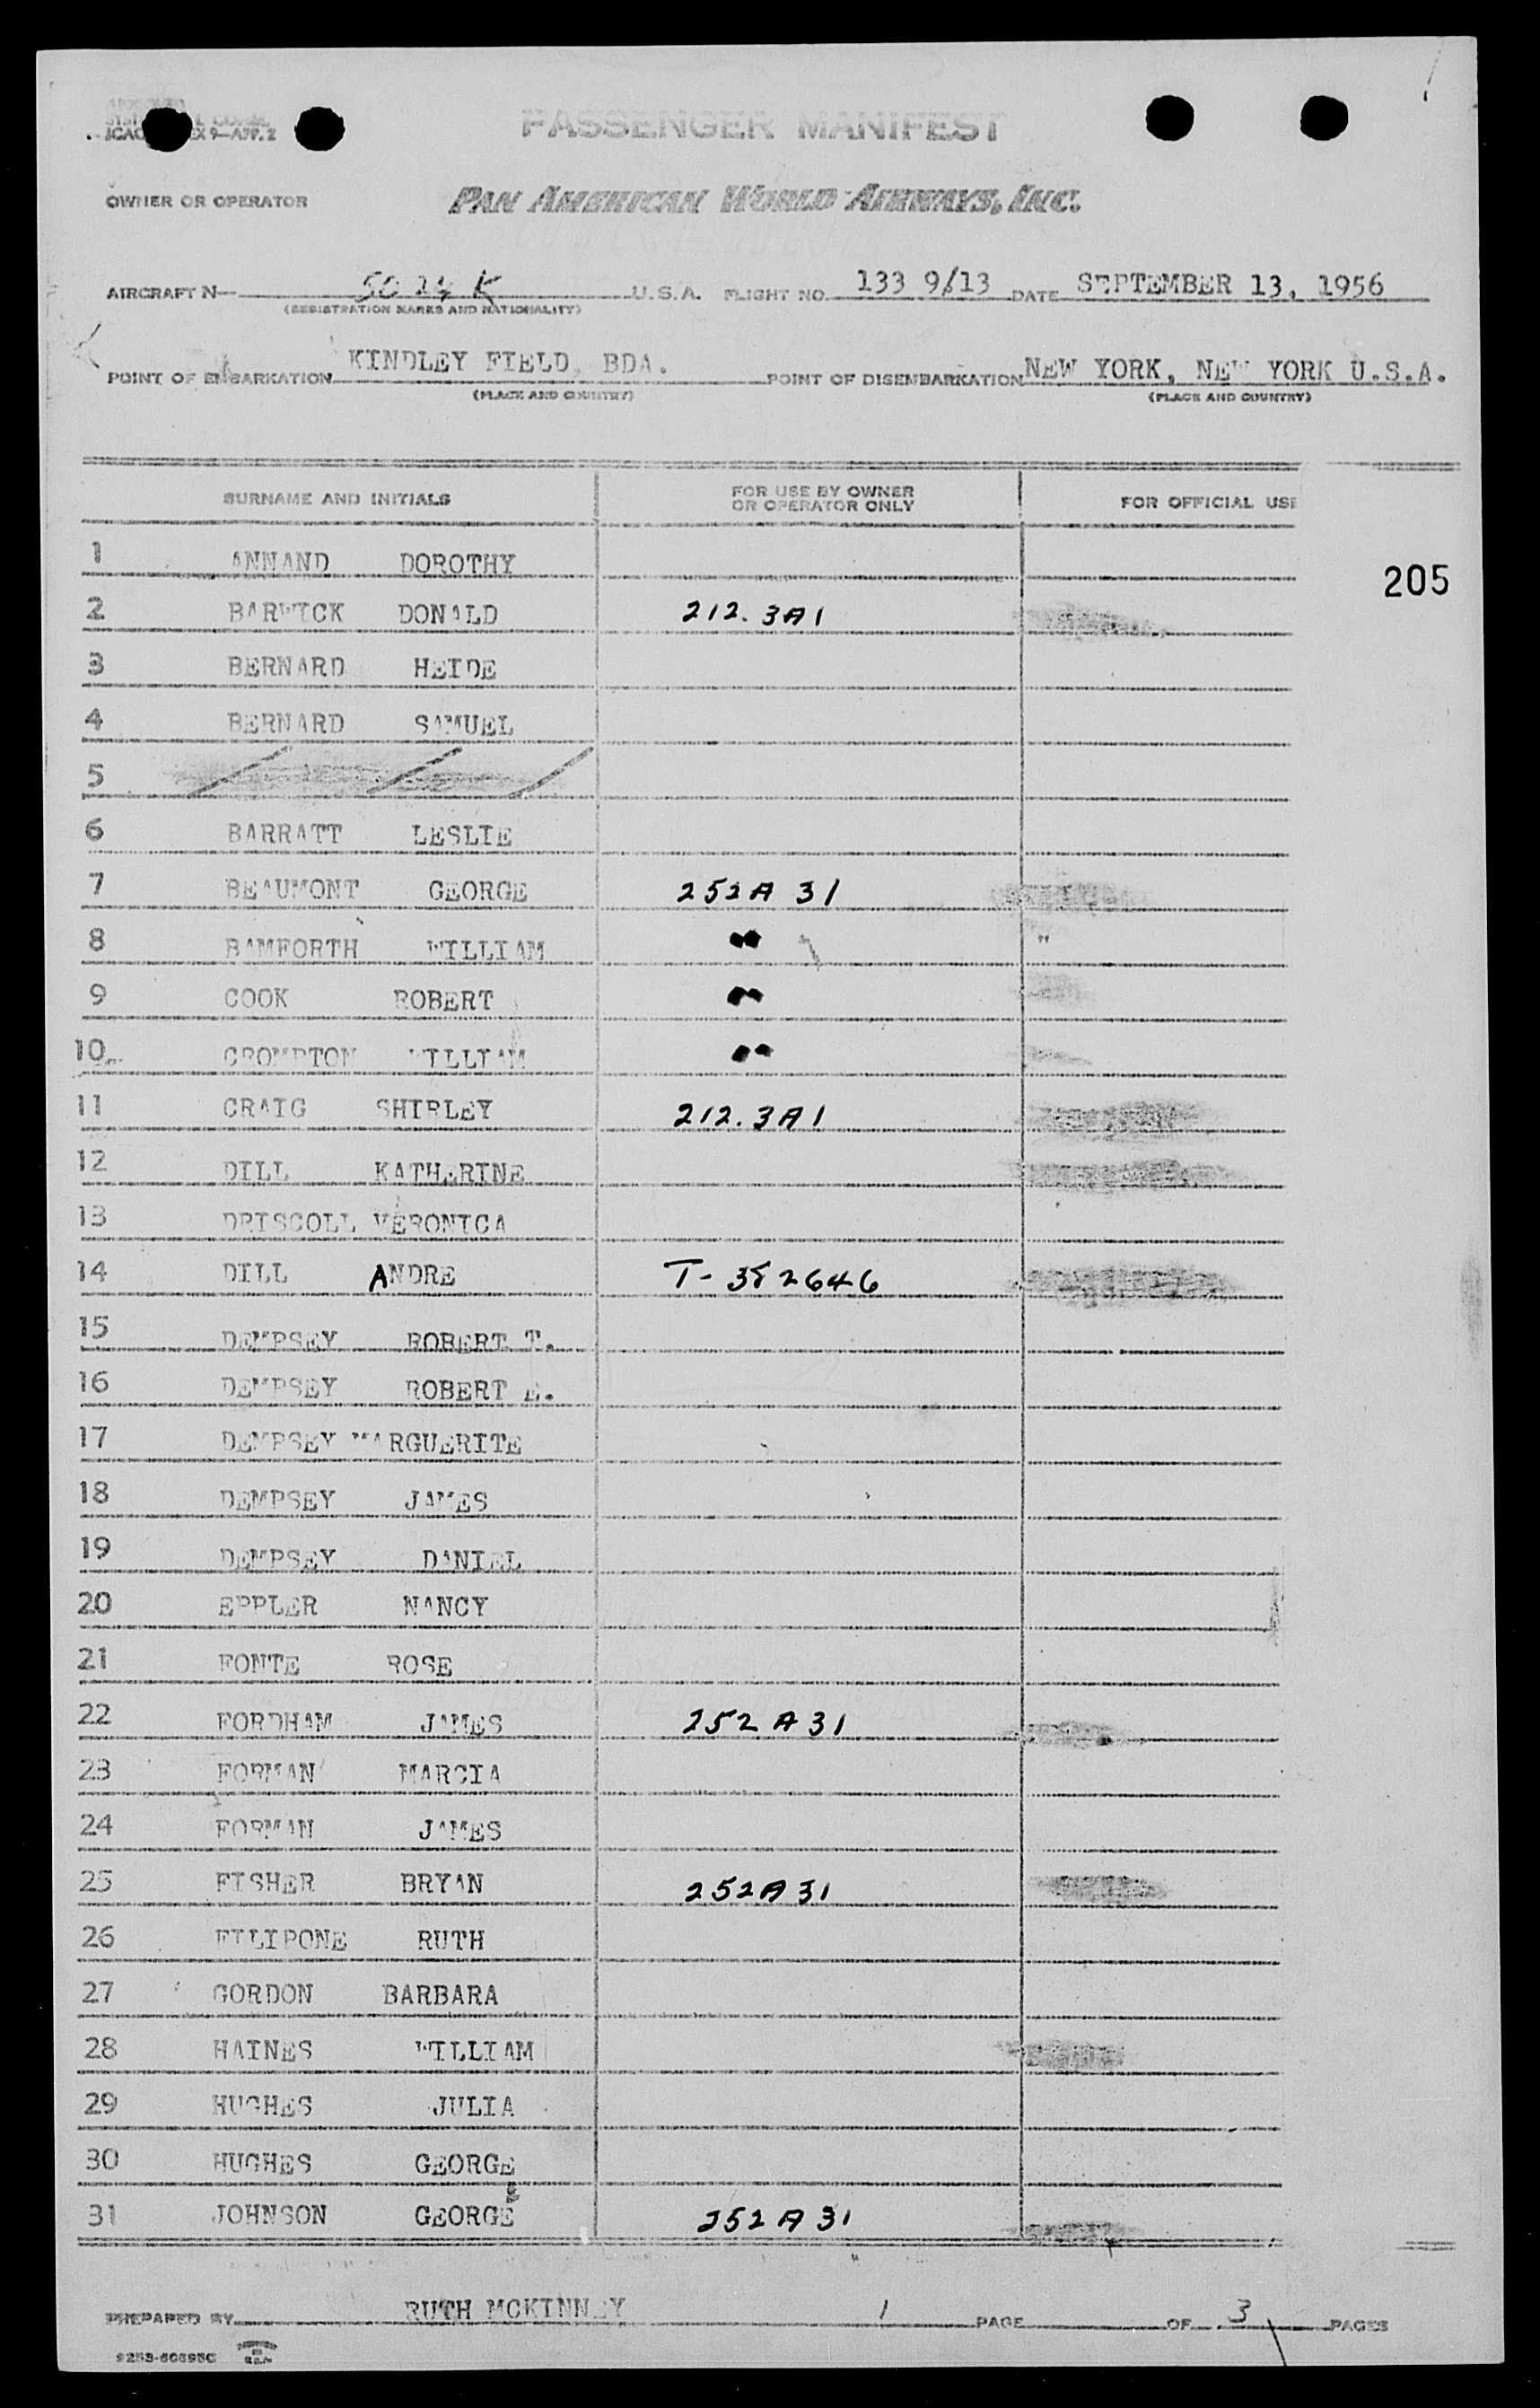 ICAO EX 9—APP. 2
PASSENGER MANIFEST
OWNER OR OPERATOR PAN AMERICAN WORLD AIRWAYS, INC.
AIRCRAFT N— 5024K U.S.A. FLIGHT NO. 133 9/13 DATE SEPTEMBER 13, 1956
(REGISTRATION MARKS AND NATIONALITY)
POINT OF EMBARKATION KINDLEY FIELD, BDA. POINT OF DISEMBARKATION NEW YORK, NEW YORK U.S.A.
(PLACE AND COUNTRY) (PLACE AND COUNTRY)
SURNAME AND INITIALS FOR USE BY OWNER OR OPERATOR ONLY FOR OFFICIAL USE
1 ANNAND DOROTHY
205
2 BARWICK DONALD 212.3A1
3 BERNARD HEIDE
4 BERNARD SAMUEL
5
6 BARRATT LESLIE
7 BEAUMONT GEORGE 252A 31
8 BAMFORTH WILLIAM " "
9 COOK ROBERT "
10 CROMPTON WILLIAM "
11 CRAIG SHIRLEY 212.3A1
12 DILL KATHERINE
13 DRISCOLL VERONICA
14 DILL ANDRE T-382646
15 DEMPSEY ROBERT T.
16 DEMPSEY ROBERT E.
17 DEMPSEY MARGUERITE
18 DEMPSEY JAMES
19 DEMPSEY DANIEL
20 EPPLER NANCY
21 FONTE ROSE
22 FORDHAM JAMES 252 A 31
23 FORMAN MARCIA
24 FORMAN JAMES
25 FISHER BRYAN 252A31
26 FILIPONE RUTH
27 GORDON BARBARA
28 HAINES WILLIAM
29 HUGHES JULIA
30 HUGHES GEORGE
31 JOHNSON GEORGE 252 A 31
PREPARED BY RUTH MCKINNEY 1 PAGE OF 3 PAGES